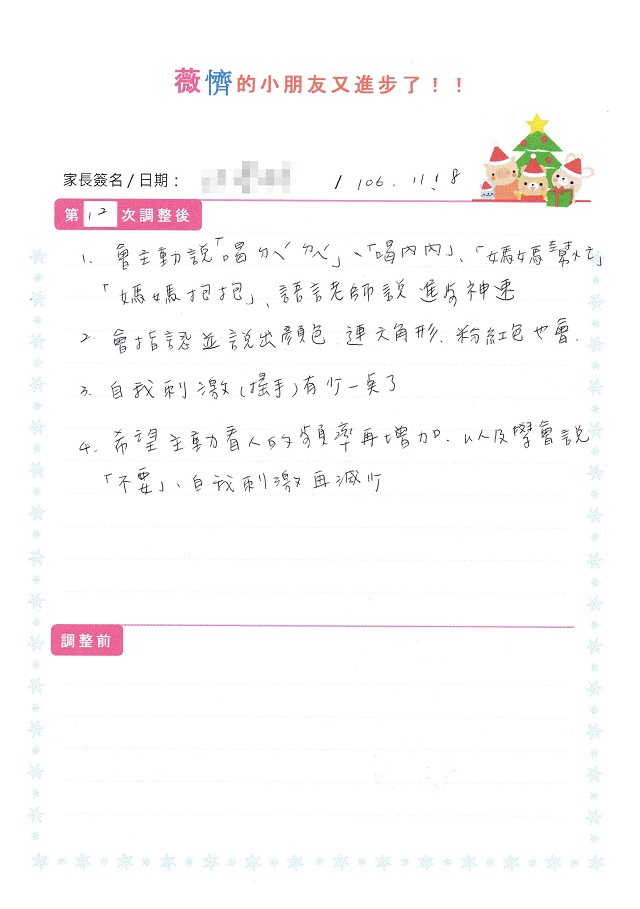 薇懠的小朋友又進步了！！
家長簽名/日期： / 106.11.8
第12次調整後
1. 會主動說「喝ㄋㄟㄋㄟ」、「喝內內」、「媽媽幫忙」
「媽媽抱抱」、語言老師說進步神速
2. 會指認並說出顏色.連六角形.粉紅色也會.
3. 自我刺激(搖手)有少一點了
4. 希望主動看人的頻率再增加.以及學會說
「不要」、自我刺激再減少
調整前